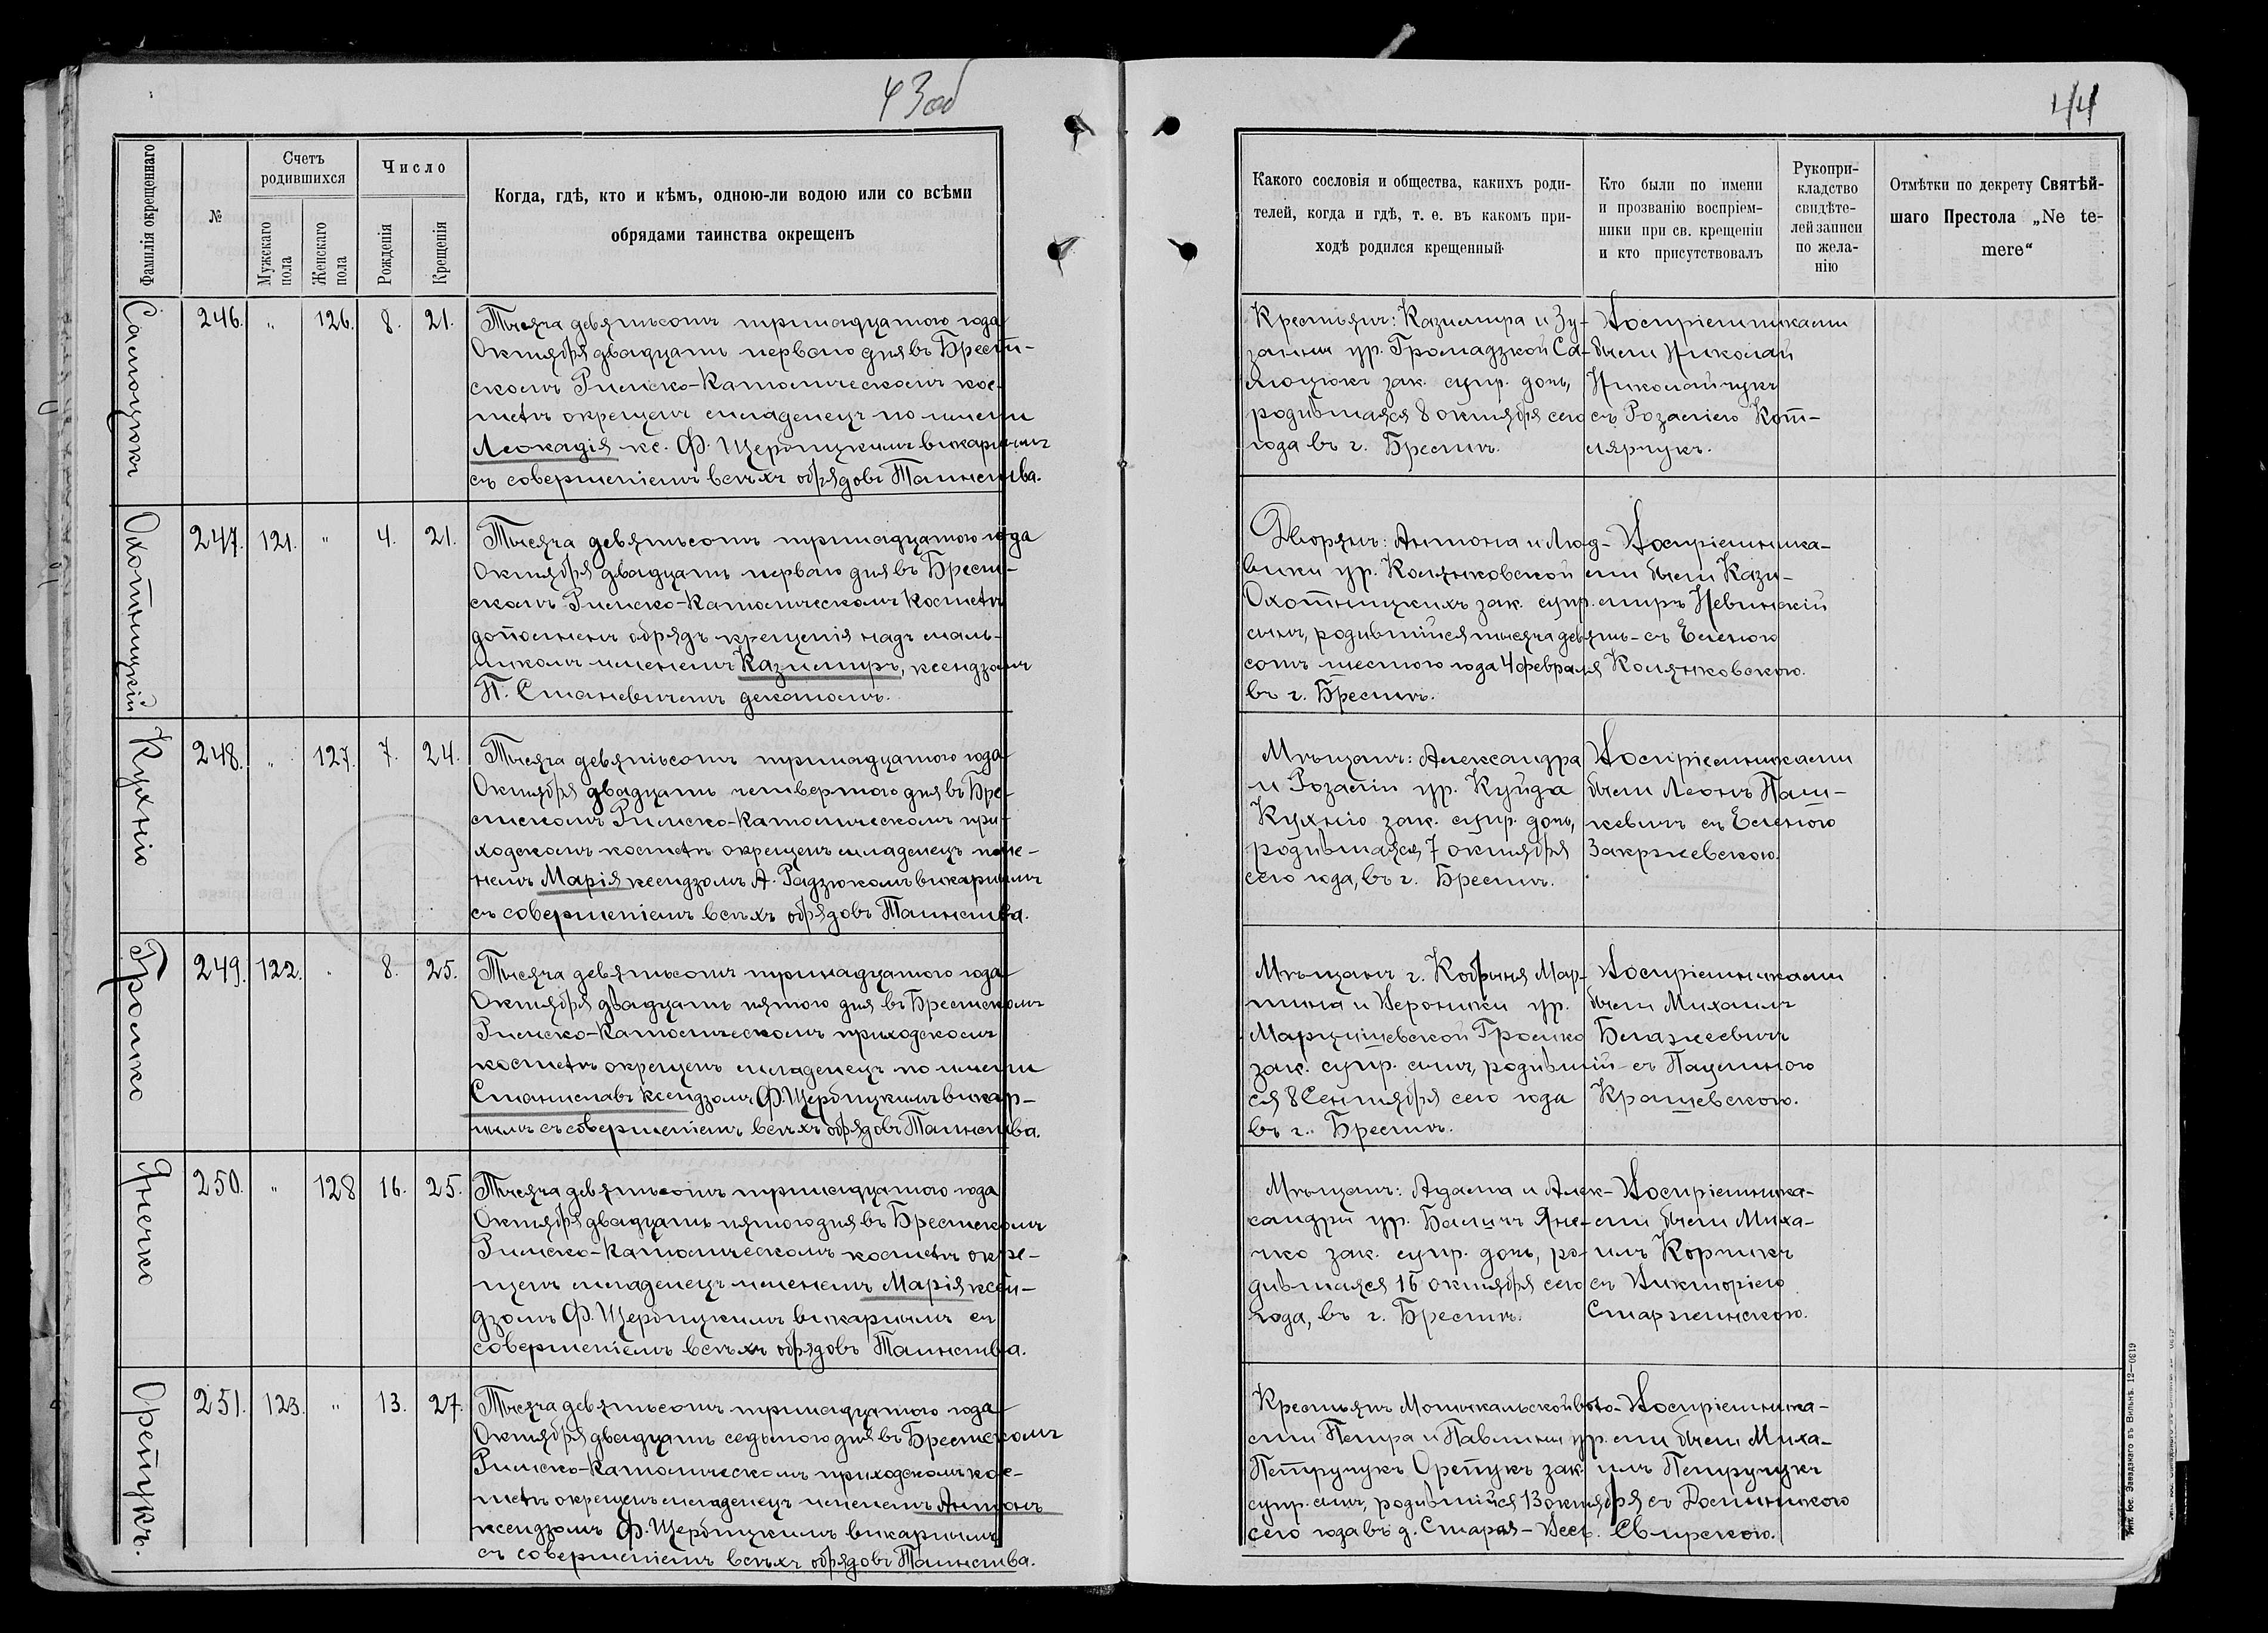 43об
Фамилія окрещеннаго
№
Счетъ
родившихся
Мужскаго
пола
Женскаго
пола
Число
Рожденія
Крещенія
Когда, гдѣ, кто и кѣмъ, одною-ли водою или со всѣми
обрядами таинства окрещенъ
Самоцюкъ
246. " 126. 8. 21.
Тысяча девятьсотъ тринадцатого года
Октября двадцать перваго дня въ Брест-
скомъ Римско-Католическомъ кос-
телѣ окрещенъ младенецъ по имени
Леокадія кс. Ф. Щербицкимъ викарнымъ
съ совершеніемъ всѣхъ обрядовъ Таинства.
Охотницкій
247. 121. " 4. 21.
Тысяча девятьсотъ тринадцатого года
Октября двадцать перваго дня въ Брест-
скомъ Римско-Католическомъ Костелѣ
дополненъ обрядъ крещенія надъ маль-
чикомъ именемъ Казимиръ, ксендзомъ
П. Станевичемъ деканомъ.
Кухнію
248. " 127. 7. 24.
Тысяча девятьсотъ тринадцатого года
Октября двадцать четвертого дня въ Бре-
стскомъ Римско-Католическомъ при-
ходскомъ костелѣ окрещенъ младенецъ име-
немъ Марія ксендзомъ А. Радзюкомъ викарнымъ
съ совершеніемъ всѣхъ обрядовъ Таинства.
Громко
249. 122. " 8. 25.
Тысяча девятьсотъ тринадцатого года
Октября двадцать пятого дня въ Брестскомъ
Римско-Католическомъ приходскомъ
костелѣ окрещенъ младенецъ по имени
Станиславъ ксендзомъ Ф. Щербицкимъ викар-
нымъ съ совершеніемъ всѣхъ обрядовъ Таинства.
Янечко
250. " 128 16. 25.
Тысяча девятьсотъ тринадцатого года
Октября двадцать пятого дня въ Брестскомъ
Римско-Католическомъ костелѣ окре-
щенъ младенецъ именемъ Марія ксен-
дзомъ Ф. Щербицкимъ викарнымъ съ
совершеніемъ всѣхъ обрядовъ Таинства.
Орепукъ.
251. 123. " 13. 27.
Тысяча девятьсотъ тринадцатого года
Октября двадцать седьмого дня въ Брестскомъ
Римско-Католическомъ приходскомъ кос-
телѣ окрещенъ младенецъ именемъ Антонъ
ксендзомъ Ф. Щербицкимъ викарнымъ
съ совершеніемъ всѣхъ обрядовъ Таинства.
44
Какого сословія и общества, какихъ роди-
телей, когда и гдѣ, т. е. въ какомъ при-
ходѣ родился крещенный
Кто были по имени
и прозванію воспріем-
ники при св. крещеніи
и кто присутствовалъ
Рукопри-
кладство
свидѣте-
лей записи
по жела-
нію
Отмѣтки по декрету Святѣй-
шаго Престола „Ne te-
mere“
Крестьянъ: Казимира и Зу-
занны ур. Громадзкой Са-
моцюкъ зак. супр. дочь,
родившаяся 8 октября сего
года въ г. Брестѣ.
Воспріемниками
были Николай
Николайчукъ
съ Розаліею Кот-
лярчукъ.
Дворянъ: Антона и Люд-
вики ур. Колянковской
Охотницкихъ зак. супр.
сынъ, родившійся тысяча девять-
сотъ шестого года 4 февраля
въ г. Брестѣ.
Воспріемника-
ми были Кази-
миръ Невинскій
съ Еленою
Колянковскою.
Мѣщанъ: Александра
и Розаліи ур. Куйда
Кухнію зак. супр. дочь,
родившаяся 7 октября
сего года, въ г. Брестѣ.
Воспріемниками
были Леонъ Паш-
кевичъ съ Еленою
Закржевскою.
Мѣщанъ г. Кобрыня Мар-
тина и Вероники ур.
Марцишевской Громко
зак. супр. сынъ, родившій-
ся 8 Сентября сего года
въ г. Брестѣ.
Воспріемниками
были Михаилъ
Блажеевичъ
съ Паулиною
Крашевскою.
Мѣщанъ: Адама и Алек-
сандры ур. Баличъ Яне-
чко зак. супр. дочь, ро-
дившаяся 16 октября сего
года, въ г. Брестѣ.
Воспріемника-
ми были Миха-
илъ Корчикъ
съ Викторіею
Старжинскою.
Крестьянъ Мотыкальской воло-
сти Петра и Павлины ур.
Петручукъ Орепукъ зак.
супр. сынъ, родившійся 13 октября
сего года въ д. Старая-Весь.
Воспріемника-
ми были Миха-
илъ Петручукъ
съ Доминикою
Свирскою.
Тип. Іос. Завадзкаго въ Вильнѣ. 12—0819